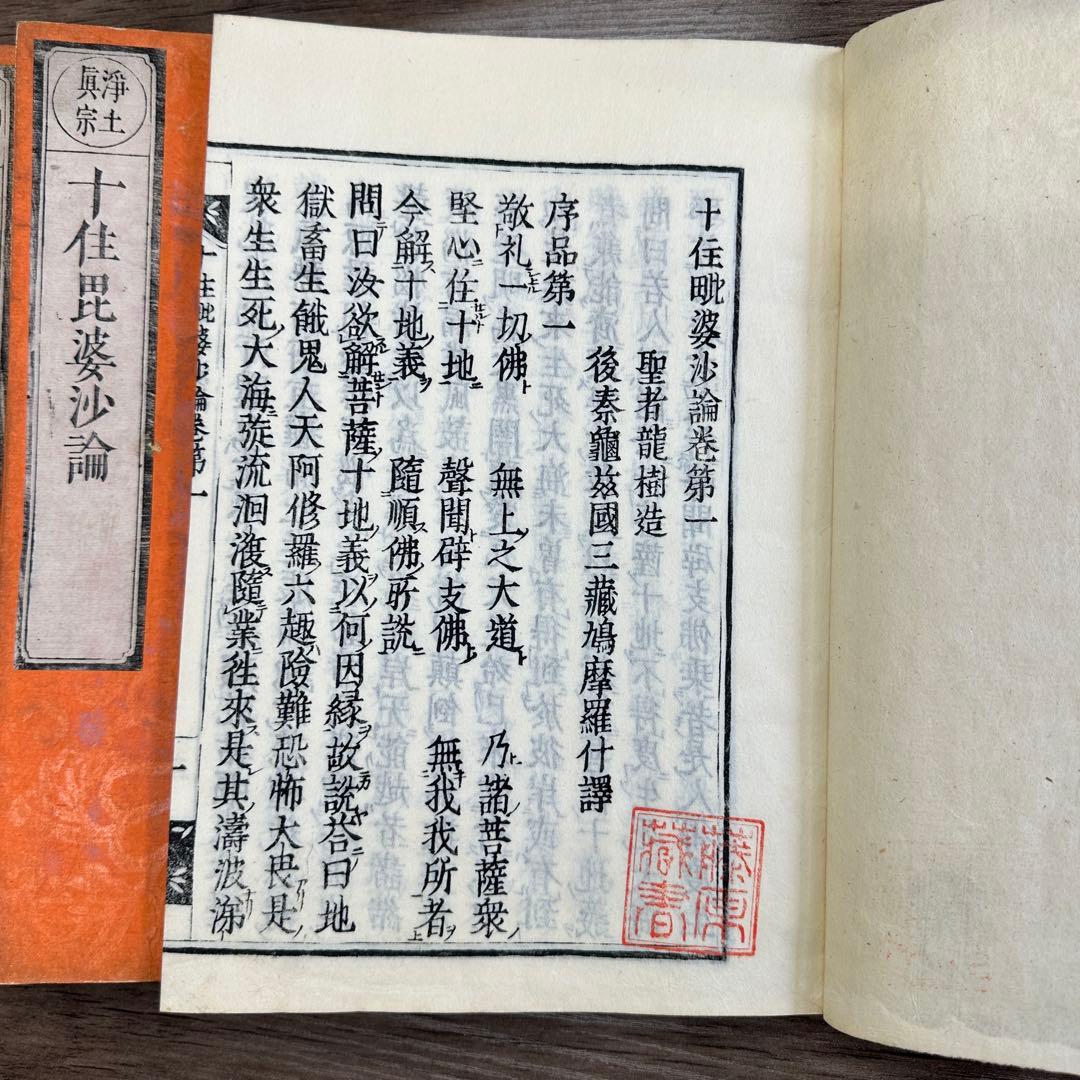 十住毗婆沙論卷第一
聖者龍樹造
後秦龜茲國三藏鳩摩羅什譯
序品第一
敬礼一切佛 無上之大道 乃諸菩薩衆
堅心住十地 聲聞辟支佛 無我我所者
今解十地義 隨順佛所說
問曰汝欲解菩薩十地義以何因縁故說荅曰地
獄畜生餓鬼人天阿修羅六趣險難恐怖大畏是
衆生生死大海旋流洄澓隨業往來是其濤波涕
十住毗婆沙論卷第一
藤原
藏書
淨土
眞宗
十住毘婆沙論